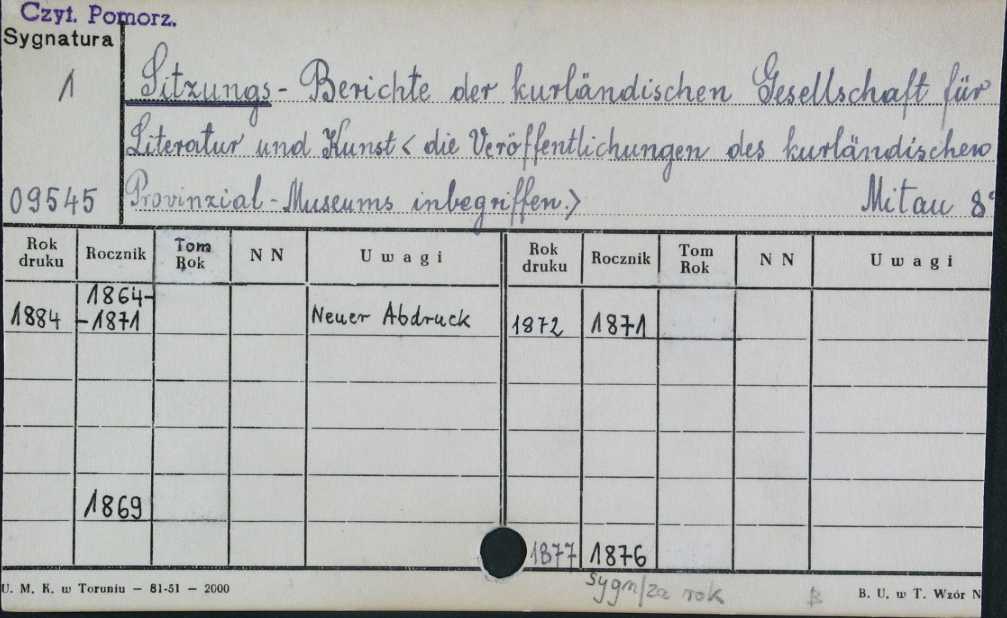 Czyt. Pomorz.
Sygnatura
1
Sitzungs - Berichte der kurländischen Gesellschaft für
Literatur und Kunst < die Veröffentlichungen des kurländischen
09545
Provinzial - Museums inbegriffen.> Mitau 8°
Rok druku Rocznik Tom Rok N N Uwagi Rok druku Rocznik Tom Rok N N Uwagi
1884 1864-
-1871 Neuer Abdruck 1872 1871
1869
1877 1876
sygn/za rok
B
U. M. K. w Toruniu — 81-51 — 2000 B. U. w T. Wzór N